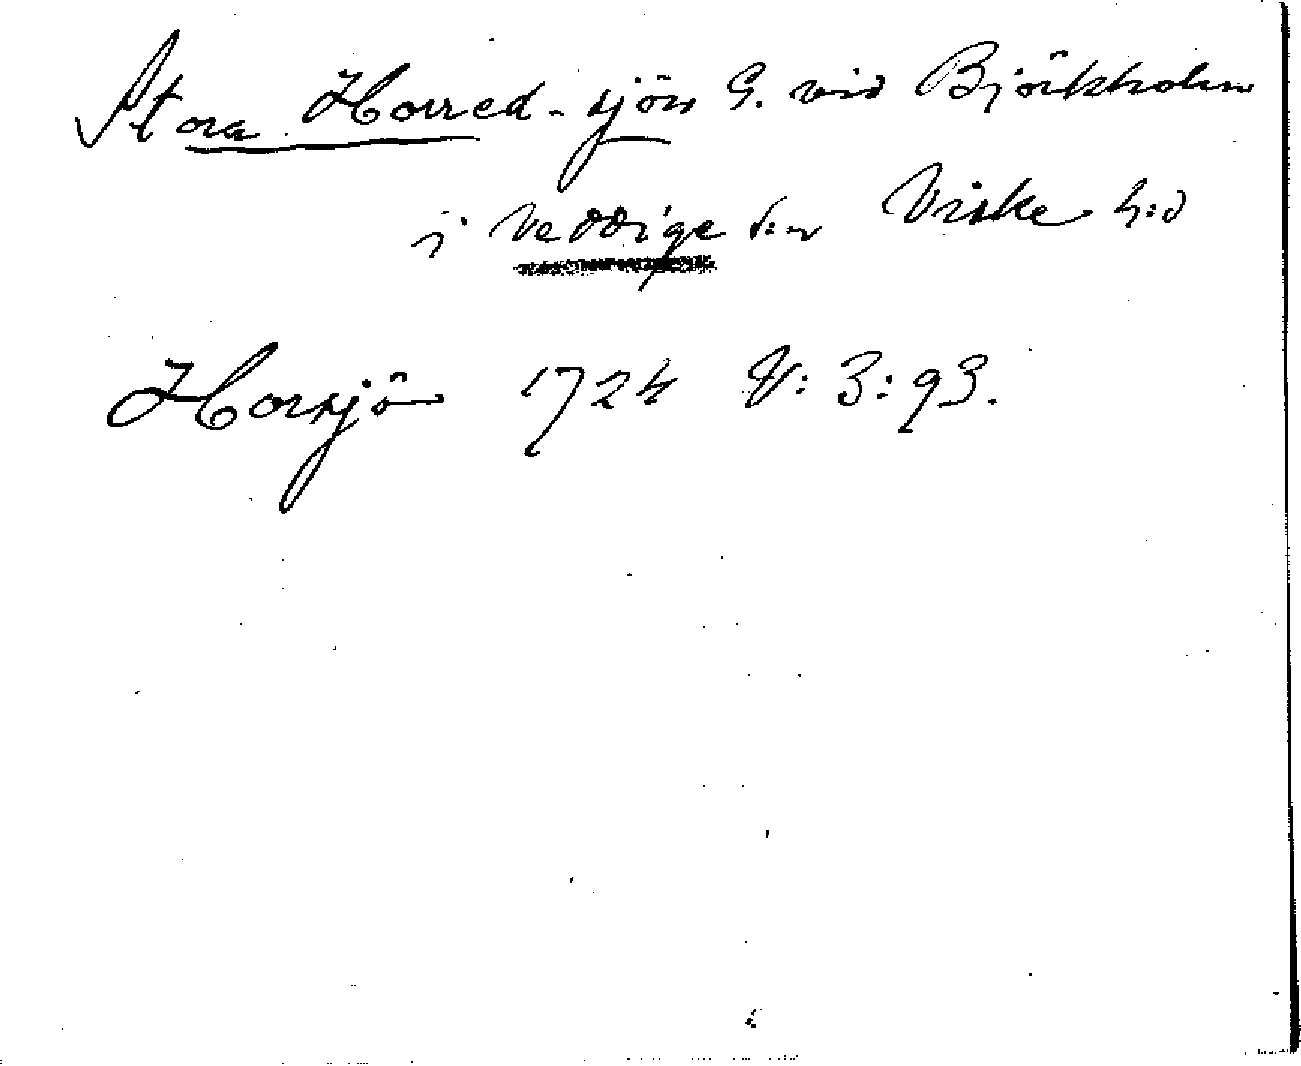 Stora Horred-sjön G. vid Björkholm
i Veddige s:n Viske h:d
Horsjö 1724 V: 3: 93.